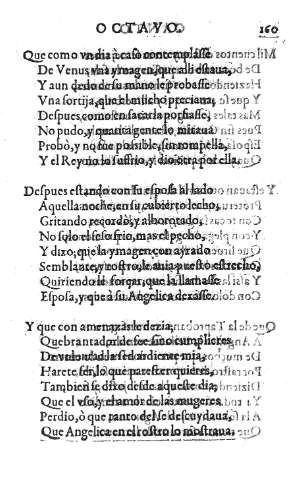 OCTAVO. 160
Que como vn dia a caso contemplasse
De Venus vna ymagen, que alli estaua,
Y aun dedo de su mano le probasse
Vna sortija, que el mucho preciaua,
Despues, como en sacarla porfiasse,
No pudo, y quanta gente lo miraua
Probò, y no fue possible, sin rompella,
Y el Rey no lo sufrio, y dio otra por ella.
Despues estando con su esposa al lado
Aquella noche, en su cubierto lecho,
Gritando recordò, y alborotado,
No solo el seso frio, mas el pecho,
Y dixo, que la ymagen con ayrado
Semblante, y rostro, le auia puesto estrecho,
Quiriendo le forçar, que la llamasse
Esposa, y que à su Angelica dexasse.
Y que con amenazarle dezia,
Quebrantador de fee sino cumplieres
De voluntad la fed ardiente mia,
Harete ser, lo que parecer quieres,
Tambien se dixo desde aqueste dia,
Que el vso, y el amor de las mugeres
Perdio, ò que tanto del se descuydaua,
Que Angelica en el rostro lo mostraua.